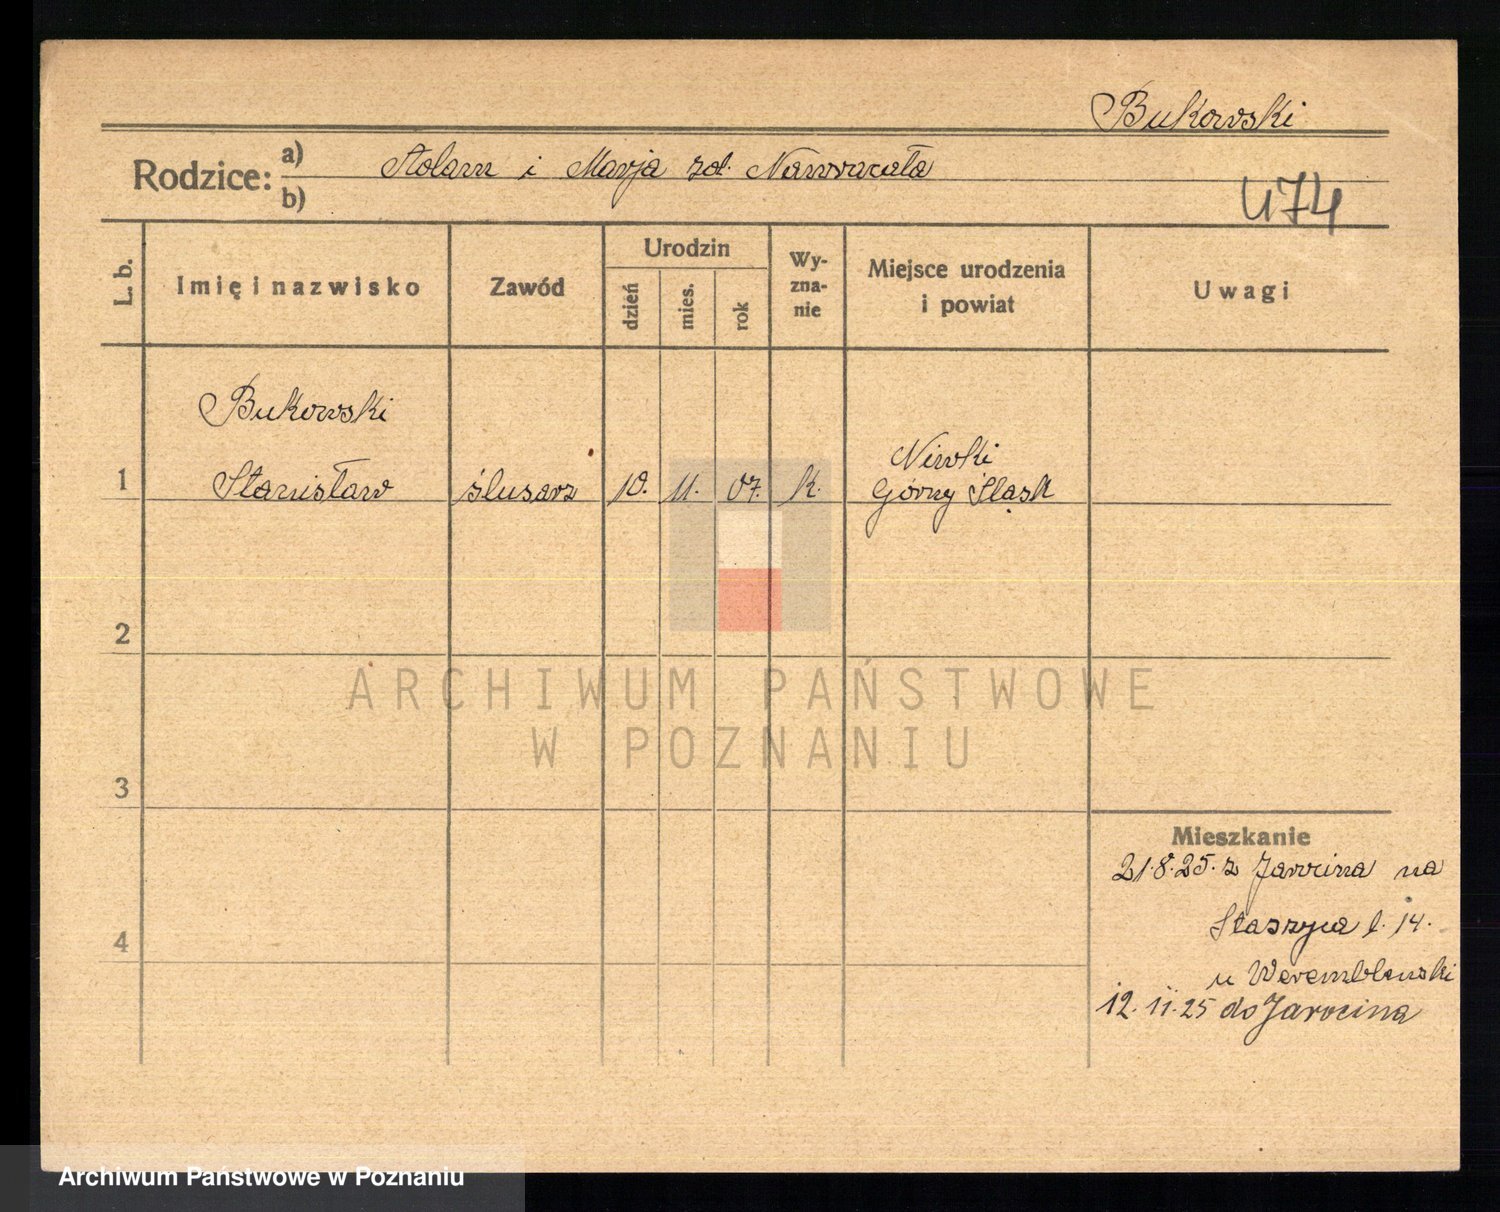 Bukowski
Rodzice: a) Adam i Marja zd. Nawrocała
b)
474
L. b.
Imię i nazwisko
Zawód
Urodzin
dzień
mies.
rok
Wy-
zna-
nie
Miejsce urodzenia
i powiat
Uwagi
Bukowski
1 Stanisław
ślusarz
10. 11. 07.
k.
Niwki
Górny Śląsk
2
3
4
Mieszkanie
21.8.25. z Jarocina na
Staszyca l. 14.
u
12. 11. 25 do Jarocina
ARCHIWUM PAŃSTWOWE
W POZNANIU
Archiwum Państwowe w Poznaniu